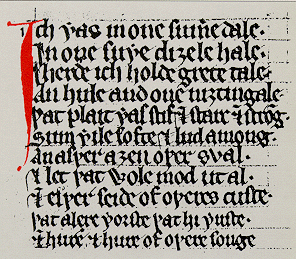 Ich ƿas in one sum̃e dale·
In one suþe diȝele hale·
Iherde ich holde grete tale·
An hule and one niȝtingale·
Þat plait ƿas stif ⁊ starc ⁊ strōg·
Sum ƿile softe ⁊ lud among·
An aiþer aȝen oþer sval·
⁊ let þat ƿole mod ut al·
⁊ eiþer seide of oþeres custe·
þat alere ƿorste þat hi ƿuste·
⁊ hure ⁊ hure of oþere songe